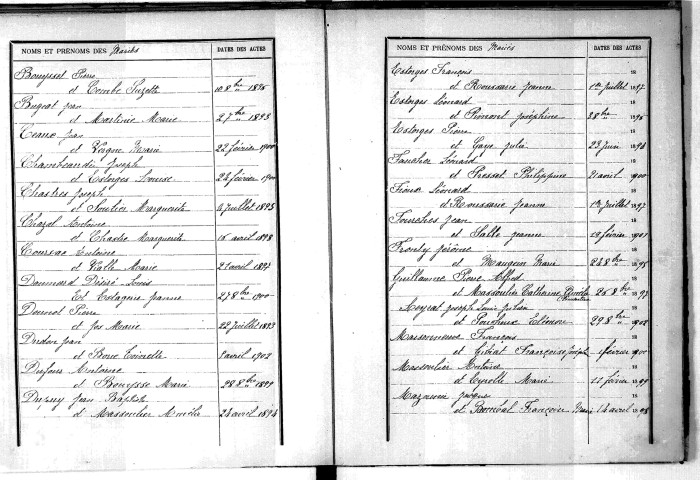 NOMS ET PRÉNOMS DES Mariés DATES DES ACTES
Bouyssel Pierre
et Combe Suzette 10 8bre 1895
Bugeat Jean
et Martinie Marie 27 bre 1893
Jean
et Vergne Marie 22 février 1900
Joseph
et Estorges Louise 22 février 1900
Chastres Joseph
et Soulier Marguerite 6 juillet 1895
Chazal Antoine
et Chastre Marguerite 16 avril 1898
Coursac Antoine
et Vialle Marie 21 avril 1897
Daumard Désiré Louis
Et Estagne Jeanne 27 8bre 1900
Doumot Pierre
et Jos Marie 22 juillet 1893
Dudon Jean
et Borie 1 avril 1902
Dufour Antoine
et Bouysse Marie 28 8bre 1899
Dupuy Jean Baptiste
et Massoulier Amélie 24 avril 1894
NOMS ET PRÉNOMS DES Mariés DATES DES ACTES
Estorges François 18
et Roussarie Jeanne 1er juillet 1897
Estorges Léonard 18
et Pimont Joséphine 3 8bre 1896
Estorges Pierre 18
et Gaye Julie 23 juin 1898
Faucher Léonard 18
et Presset Philippine 21 avril 1900
Fioux Léonard 18
et Roussarie Jeanne 1er juillet 1897
Fourches Jean 18
et Salle Jeanne 10 février 1901
Fronty Jérôme 18
et Maugein Marie 26 8bre 1895
Guillaume Pierre Alfred 18
et Massoulier Catherine 26 8bre 1897
Meyrat Joseph Louis 18
et Eléonore 29 8bre 1902
Massonneuve François 18
et Gibiat Françoise Joseph 1 février 1900
Massoulier Antoine 18
et Eyrolle Marie 11 février 1899
Mazaurin Jacques 18
et Bombal Françoise Marie 14 avril 1898